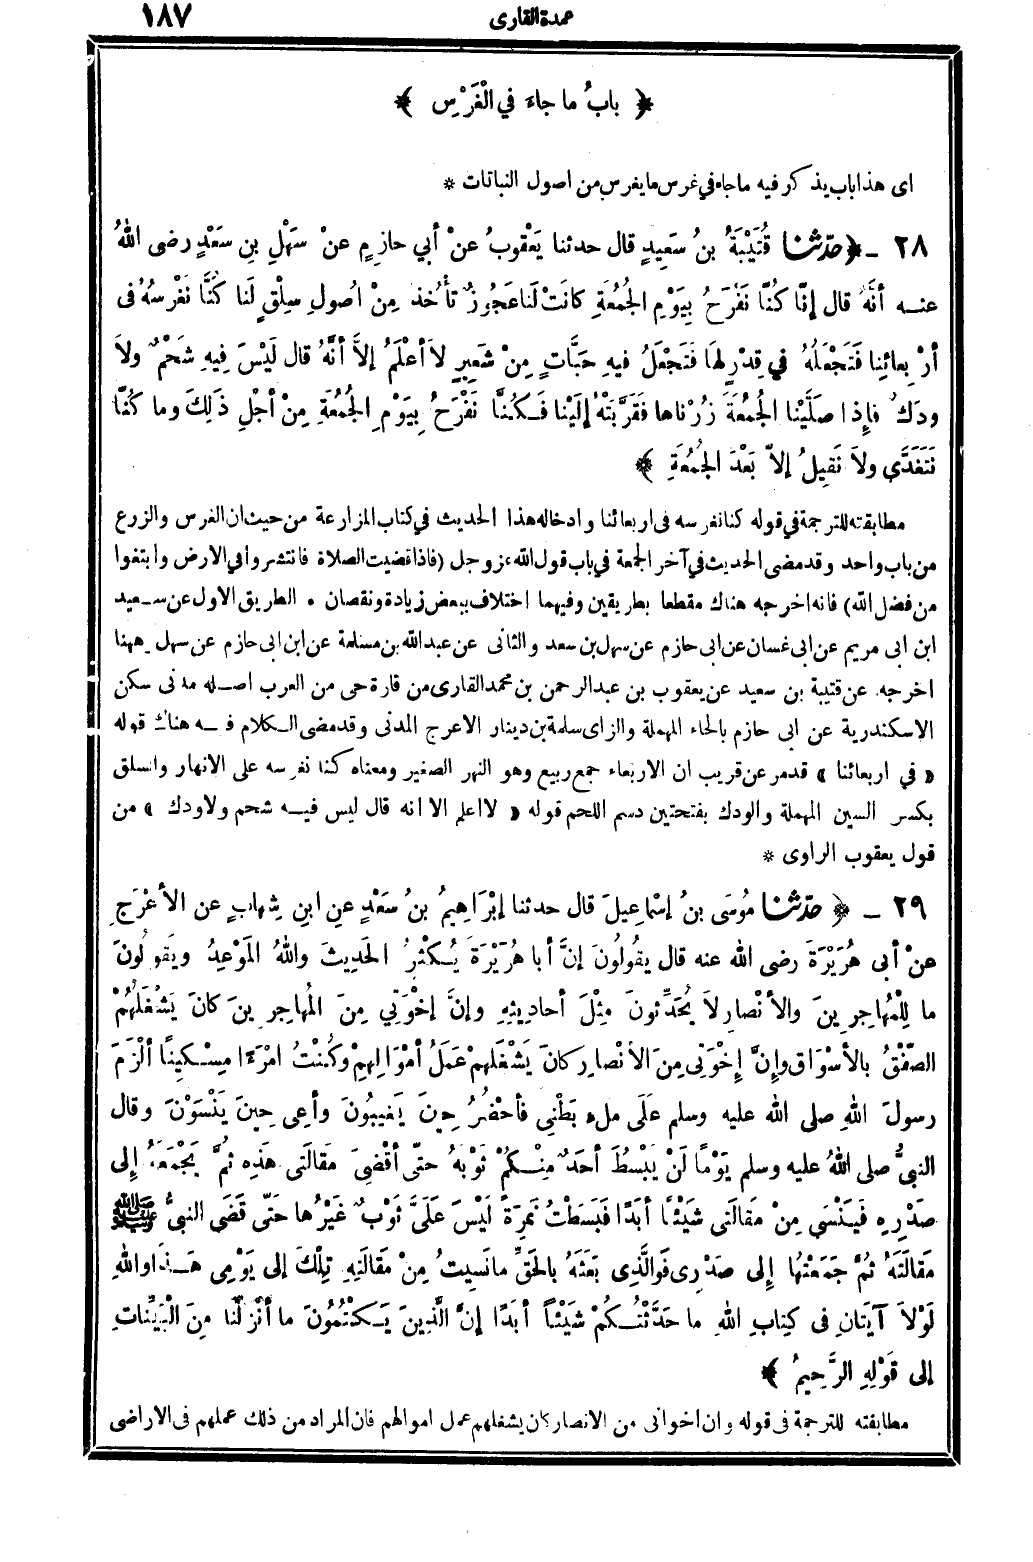 عمدة القارى ١٨٧
﴿ بابُ ما جاءَ في الْغَرْسِ ﴾
اى هذا باب يذكر فيه ما جاء في غرس ما يغرس من اصول النباتات *
٢٨ ـ ﴿ حدّثنا قُتَيْبَةُ بنُ سَعِيدٍ قال حدثنا يَعْقُوبُ عنْ أبي حازِمٍ عنْ سَهْلِ بنِ سَعْدٍ رضى اللهُ
عنــه أنَّهُ قال إنَّا كُنَّا نَفْرَحُ بِيَوْمِ الجُمُعَةِ كانَتْ لَنا عَجُوزٌ تأْخُذُ مِنْ أُصُولِ سِلْقٍ لَنا كُنَّا نَغْرِسُهُ فى
أرْبِعائِنا فَتَجْعَلُهُ في قِدْرٍ لَها فَتَجْعَلُ فيهِ حَبَّاتٍ مِنْ شَعِيرٍ لاَ أعْلَمُ إلاَّ أنَّهُ قال لَيْسَ فِيهِ شَحْمٌ ولاَ
ودَكٌ فإِذا صَلَّيْنا الجُمُعَةَ زُرْناها فَقَرَّبَتْهُ إلَيْنا فَـكُنَّا نَفْرَحُ بِيَوْمِ الجُمُعَةِ مِنْ أجْلِ ذَلِكَ وما كُنَّا
نَتَغَدَّى ولاَ نَقِيلُ إلاّ بَعْدَ الجُمُعَةِ ﴾
مطابقته للترجمة في قوله كنا نغرسه فى اربعائنا وادخاله هذا الحديث في كتاب المزارعة من حيث ان الغرس والزرع
من باب واحد وقد مضى الحديث في آخر الجمعة في باب قول الله عزوجل (فاذا قضيت الصلاة فانتشروا في الارض وابتغوا
من فضل الله) فانه اخرجه هناك مقطعا بطريقين وفيهما اختلاف ببعض زيادة ونقصان • الطريق الاول عن سـعيد
ابن ابى مريم عن ابى غسان عن ابى حازم عن سهل بن سعد والثانى عن عبدالله بن مسلمة عن ابن ابى حازم عن سهل وههنا
اخرجه عن قتيبة بن سعيد عن يعقوب بن عبدالرحمن بن محمد القارى من قارة حى من العرب اصـله مدنى سكن
الاسكندرية عن ابى حازم بالحاء المهملة والزاى سلمة بن دينار الاعرج المدنى وقد مضى الـكلام فيــه هناك قوله
« في اربعائنا » قد مر عن قريب ان الاربعاء جمع ربيع وهو النهر الصغير ومعناه كنا نغرسه على الانهار والسلق
بكسر السين المهملة والودك بفتحتين دسم اللحم قوله « لا اعلم الا انه قال ليس فيــه شحم ولا ودك » من
قول يعقوب الراوى *
٢٩ ـ ﴿ حدّثنا مُوسَى بنُ إسْماعِيلَ قال حدثنا إبْرَاهِيمُ بنُ سَعْدٍ عنِ ابنِ شِهابٍ عن الأعْرَجِ
عنْ أبى هُرَيْرَةَ رضى الله عنه قال يقُولُونَ إنَّ أبا هُرَيْرَةَ يُـكْثِرُ الحَدِيثَ واللهُ المَوْعِدُ ويَقُولُونَ
ما لِلْمُهاجِرِينَ والأنْصارِ لاَ يُحَدِّثونَ مِثْلَ أحادِيثِهِ وإنَّ إخْوَتِي مِنَ المُهاجِرِينَ كانَ يَشْغَلُهُمْ
الصَّفْقُ بالأسْوَاقِ وإنَّ إخْوَتِى مِنَ الأنْصارِ كانَ يَشْغَلُهمْ عَمَلُ أمْوَالِهِمِ وكُنْتُ امْرَءًا مِسْـكِينًا ألْزَمُ
رسولَ اللهِ صلى الله عليه وسلم عَلَى ملءِ بَطْنِى فأحْضُرُ حِينَ يَغيبُونَ وأعِى حِينَ يَنْسَوْنَ وقال
النبيُّ صلى اللهُ عليه وسلم يَوْمًا لَنْ يَبْسُطَ أحَدٌ مِنْـكُمْ ثَوْبَهُ حتّى أقْضِىَ مَقالَتِى هَذِهِ ثُمَّ يَجْمَعَهُ إلى
صَدْرِهِ فَيَنْسَى مِنْ مَقالَتِى شَيْئًا أبَدًا فَبَسَطْتُ نَمِرَةً لَيْسَ عَلَيَّ ثَوْبٌ غَيْرُها حَتّى قَضَى النبيُّ ﷺ
مَقالَتَهُ ثُمَّ جَمَعْتُها إلى صَدْرِى فَوالَّذِى بَعَثَهُ بالحَقِّ ما نَسِيتُ مِنْ مَقالَتِهِ تِلْكَ إلى يَوْمِى هَـذَا واللهِ
لَوْلاَ آيَتَانِ فى كِتابِ اللهِ ما حَدَّثْتُـكُمْ شَيْئًا أبَدًا إنَّ الَّذِينَ يَـكْتُمُونَ ما أنْزَلْنا مِنَ الْبَيِّنَاتِ
إلى قَوْلِهِ الرَّحِيمُ ﴾
مطابقته للترجمة فى قوله وان اخوانى من الانصار كان يشغلهم عمل اموالهم فان المراد من ذلك عملهم فى الاراضى